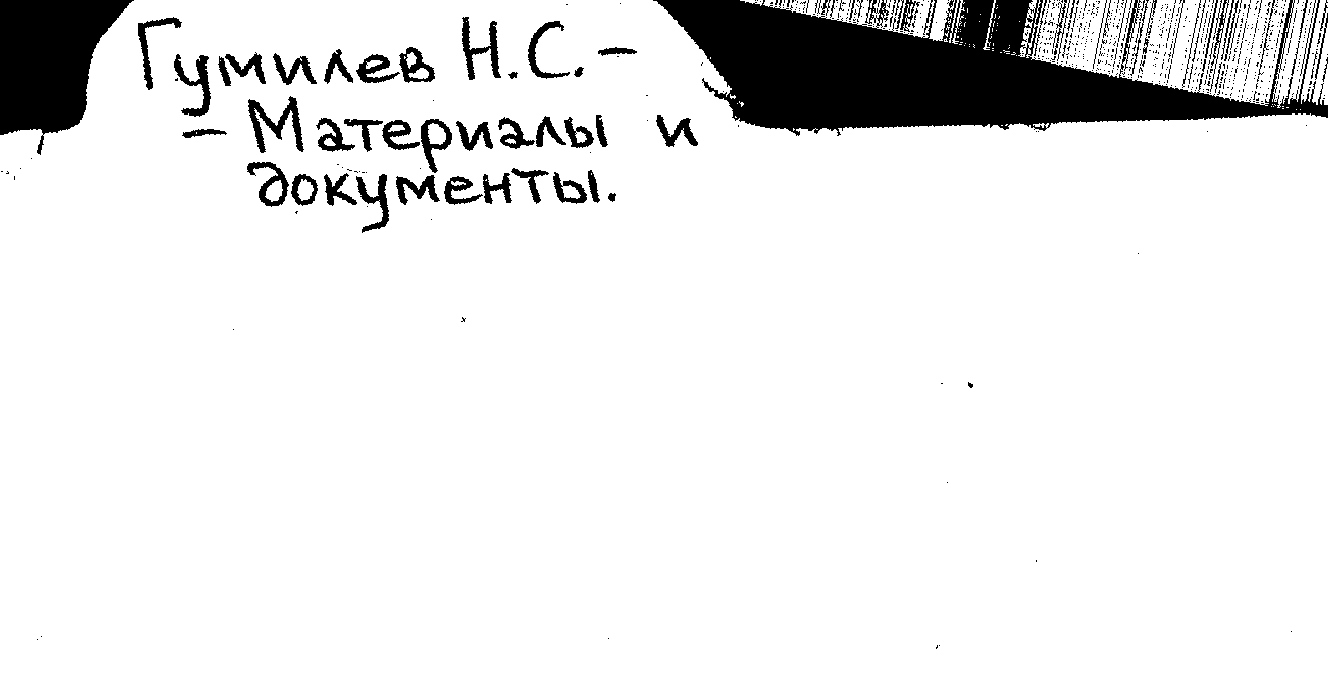 Гумилев Н.С. –
– Материалы и
документы.